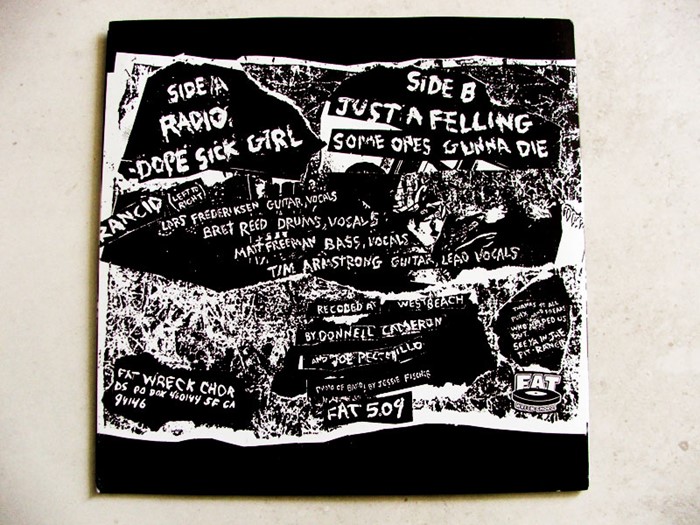 SIDE A
RADIO
DOPE SICK GIRL
SIDE B
JUST A FELLING
SOME ONES GUNNA DIE
RANCID (LEFT TO RIGHT)
LARS FREDERIKSEN GUITAR, VOCALS
BRET REED DRUMS, VOCALS
MATT FREEMAN BASS, VOCALS
TIM ARMSTRONG GUITAR, LEAD VOCALS
RECODED AT WESTBEACH
BY DONNELL CAMERON
AND JOE
BY JESSIE FISCHER
FAT 5.09
FAT WRECK CHOR
DS PO BOX 460144 SF CA
94146
THANKS TO ALL
WHO HELPED US
OUT.
SEE YA IN THE
PIT - RANCID
FAT